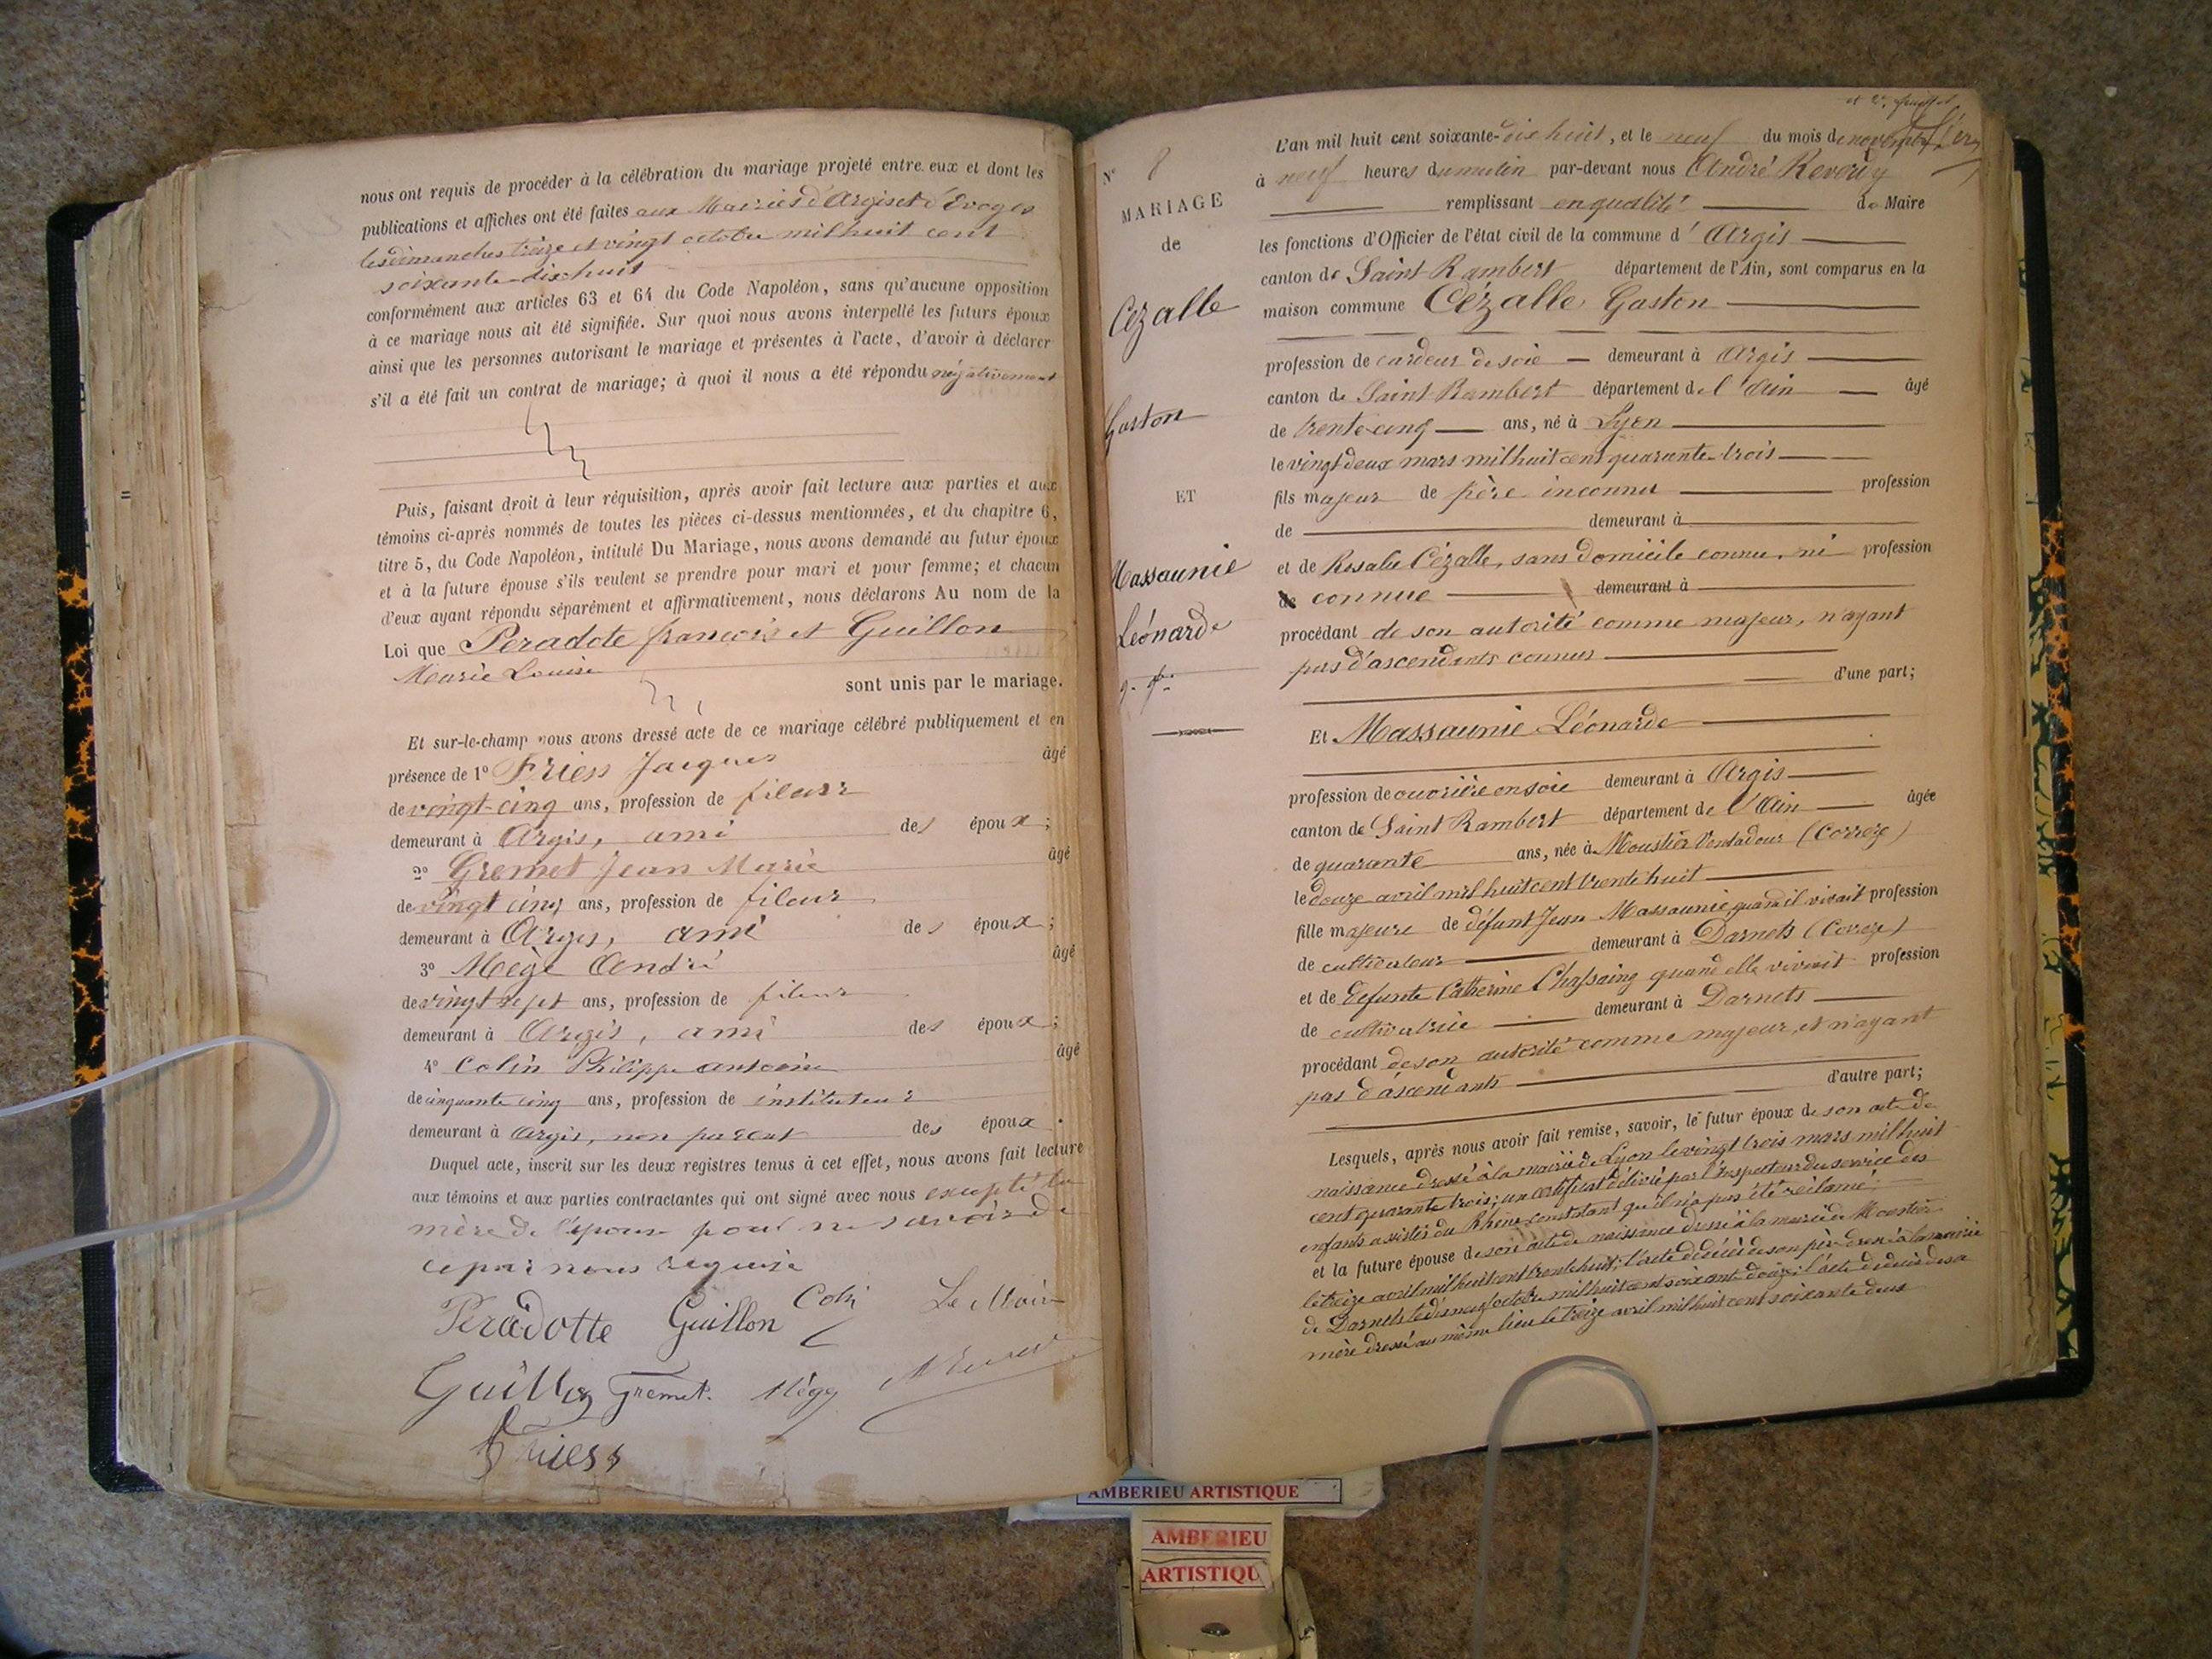 nous ont requis de procéder à la célébration du mariage projeté entre eux et dont les
publications et affiches ont été faites aux Mairies d'Argis et d'Evoges
les dimanches treize et vingt octobre mil huit cent
soixante-dix-huit
conformément aux articles 63 et 64 du Code Napoléon, sans qu'aucune opposition
à ce mariage nous ait été signifiée. Sur quoi nous avons interpellé les futurs époux
ainsi que les personnes autorisant le mariage et présentes à l'acte, d'avoir à déclarer
s'il a été fait un contrat de mariage; à quoi il nous a été répondu négativement
Puis, faisant droit à leur réquisition, après avoir fait lecture aux parties et aux
témoins ci-après nommés de toutes les pièces ci-dessus mentionnées, et du chapitre 6,
titre 5, du Code Napoléon, intitulé Du Mariage, nous avons demandé au futur époux
et à la future épouse s'ils veulent se prendre pour mari et pour femme; et chacun
d'eux ayant répondu séparément et affirmativement, nous déclarons Au nom de la
Loi que Peradote françois et Guillon
Marie Louise
sont unis par le mariage.
Et sur-le-champ nous avons dressé acte de ce mariage célébré publiquement et en
présence de 1° Friess Jacques âgé
de vingt-cinq ans, profession de fileur
demeurant à Argis, ami des époux;
2° Gremet Jean Marie âgé
de vingt cinq ans, profession de fileur
demeurant à Argis, ami des époux;
3° Mège André âgé
de vingt sept ans, profession de fileur
demeurant à Argis, ami des époux;
4° Colin Philippe antoine âgé
de cinquante cinq ans, profession de instituteur
demeurant à Argis, non parent des époux.
Duquel acte, inscrit sur les deux registres tenus à cet effet, nous avons fait lecture
aux témoins et aux parties contractantes qui ont signé avec nous excepté la
mère de l'époux pour ne savoir de
ce par nous requise
Peradotte Guillon Colin Le Maire
Guillon Gremet Mège
Friess
N° 8
MARIAGE
de
Cézalle
Gaston
ET
Massaunie
Léonarde
L'an mil huit cent soixante-dix huit, et le neuf du mois de novembre
à neuf heures du matin par-devant nous André Reverdy
remplissant en qualité de Maire
les fonctions d'Officier de l'état civil de la commune d'Argis
canton de Saint Rambert département de l'Ain, sont comparus en la
maison commune Cézalle Gaston
profession de cardeur de soie demeurant à Argis
canton de Saint Rambert département de l'Ain âgé
de trente-cinq ans, né à Lyon
le vingt deux mars mil huit cent quarante-trois
fils majeur de père inconnu profession
de demeurant à
et de Rosalie Cézalle, sans domicile connu, ni profession
de connue demeurant à
procédant de son autorité comme majeur, n'ayant
pas d'ascendants connus
d'une part;
Et Massaunie Léonarde
profession de ouvrière en soie demeurant à Argis
canton de Saint Rambert département de l'Ain âgée
de quarante ans, née à Moustier Ventadour (Corrèze)
le douze avril mil huit cent trente huit
fille majeure de défunt Jean Massaunie quand il vivait profession
de cultivateur demeurant à Darnets (Corrèze)
et de défunte Catherine Chassaing quand elle vivait profession
de cultivatrice demeurant à Darnets
procédant de son autorité comme majeur, et n'ayant
pas d'ascendants
d'autre part;
Lesquels, après nous avoir fait remise, savoir, le futur époux de son acte de
naissance dressé à la mairie de Lyon le vingt trois mars mil huit
cent quarante trois; un certificat délivré par l'inspecteur du service des
enfants assistés du Rhône constatant qu'il n'a pas été réclamé
et la future épouse de son acte de naissance dressé à la mairie de Moustier
le treize avril mil huit cent trente huit; l'acte de décès de son père dressé à la mairie
de Darnets le dix neuf octobre mil huit cent soixante douze; l'acte de décès de sa
mère dressé au même lieu le treize avril mil huit cent soixante deux
AMBERIEU ARTISTIQUE
AMBERIEU
ARTISTIQU